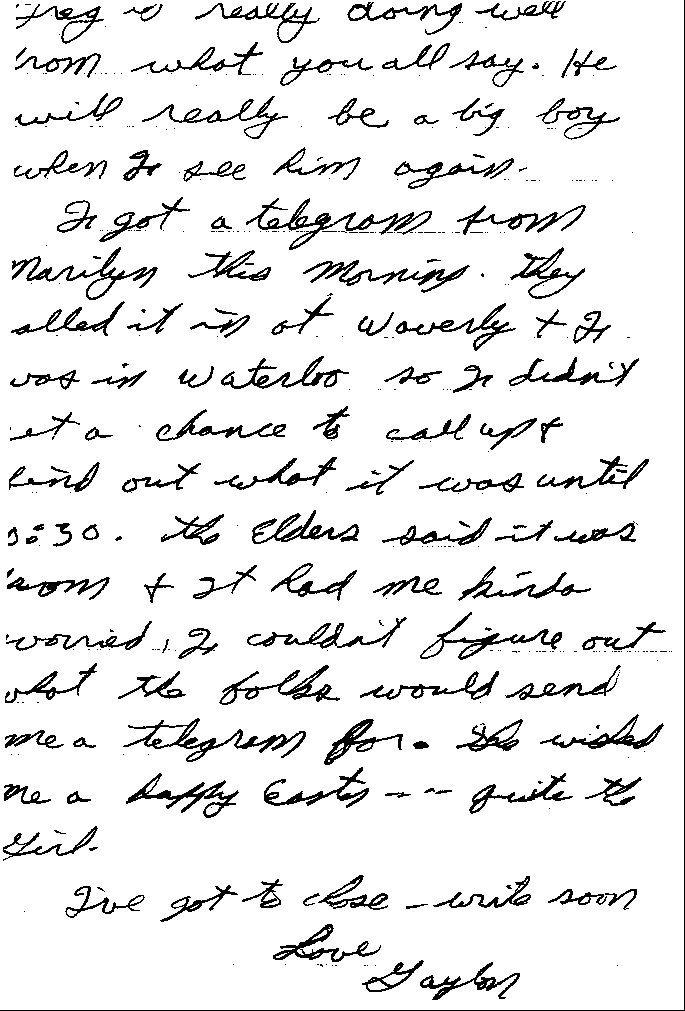 Greg is really doing well
from what you all say. He
will really be a big boy
when I see him again.
I got a telegram from
Marilyn this morning. They
alled it in at Waverly + I
was in Waterloo so I didn't
et a chance to call up +
find out what it was until
3:30. The Elders said it was
Mom + It had me kinda
worried, I couldn't figure out
what the folks would send
me a telegram for. She wished
me a happy Easter --- quite the
Girl.
I've got to close - write soon
Love
Gaylon